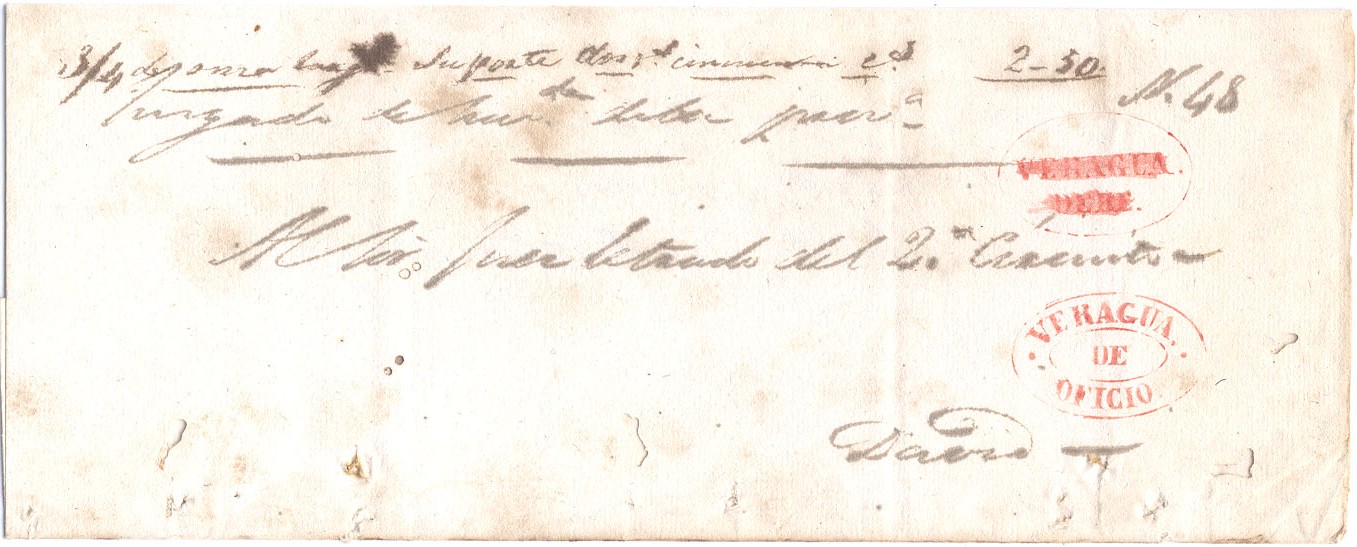 3/4 de onza Su porte dos cincuenta cs 2-50
N. 48
Juzgado de de la prov.a
VERAGUA.
DEBE.
Al Sr. Juez Letrado del 2.o Circuito
VERAGUA.
DE
OFICIO
David